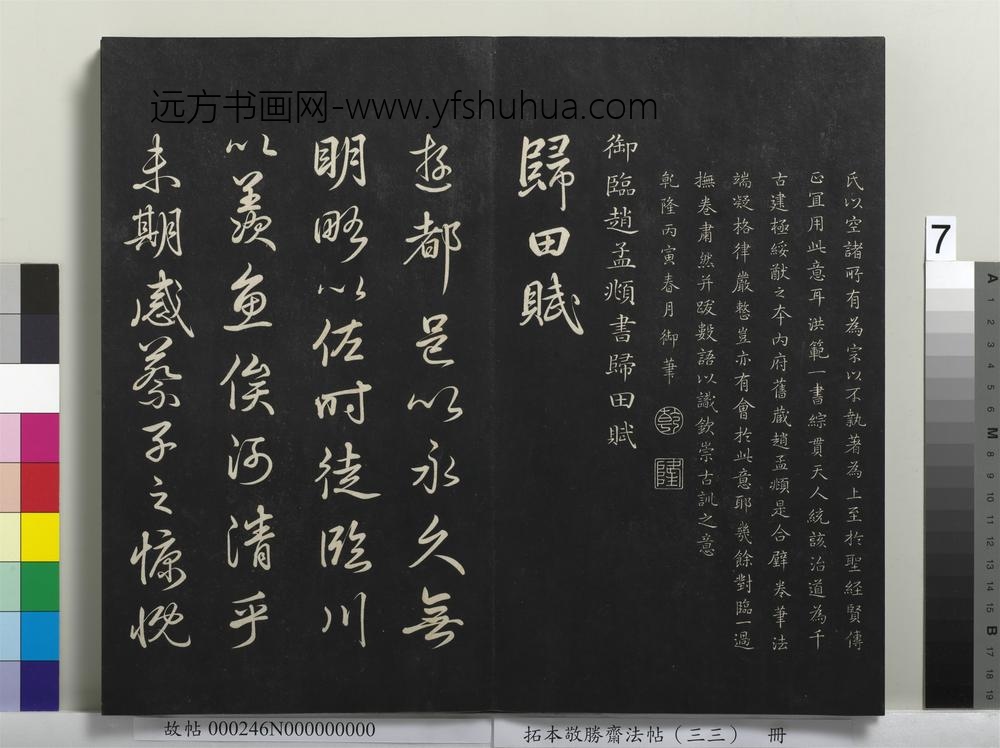 远方书画网-www.yfshuhua.com
氏以空諸所有為宗以不執著為上至於聖經賢傳
正宜用此意耳洪範一書綜貫天人統該治道為千
古建極綏猷之本內府舊藏趙孟頫是合璧卷筆法
端凝格律嚴整豈亦有會於此意耶幾餘對臨一過
撫卷肅然并跋數語以識欽崇古訓之意
乾隆丙寅春月御筆
乾
隆
御臨趙孟頫書歸田賦
歸田賦
遊都邑以永久無
明略以佐時徒臨川
以羨魚俟河清乎
未期感蔡子之慷慨
7
A
1
2
3
4
5
M
8
9
10
11
12
13
14
15
B
17
18
19
故帖 000246N000000000
拓本敬勝齋法帖（三三） 冊